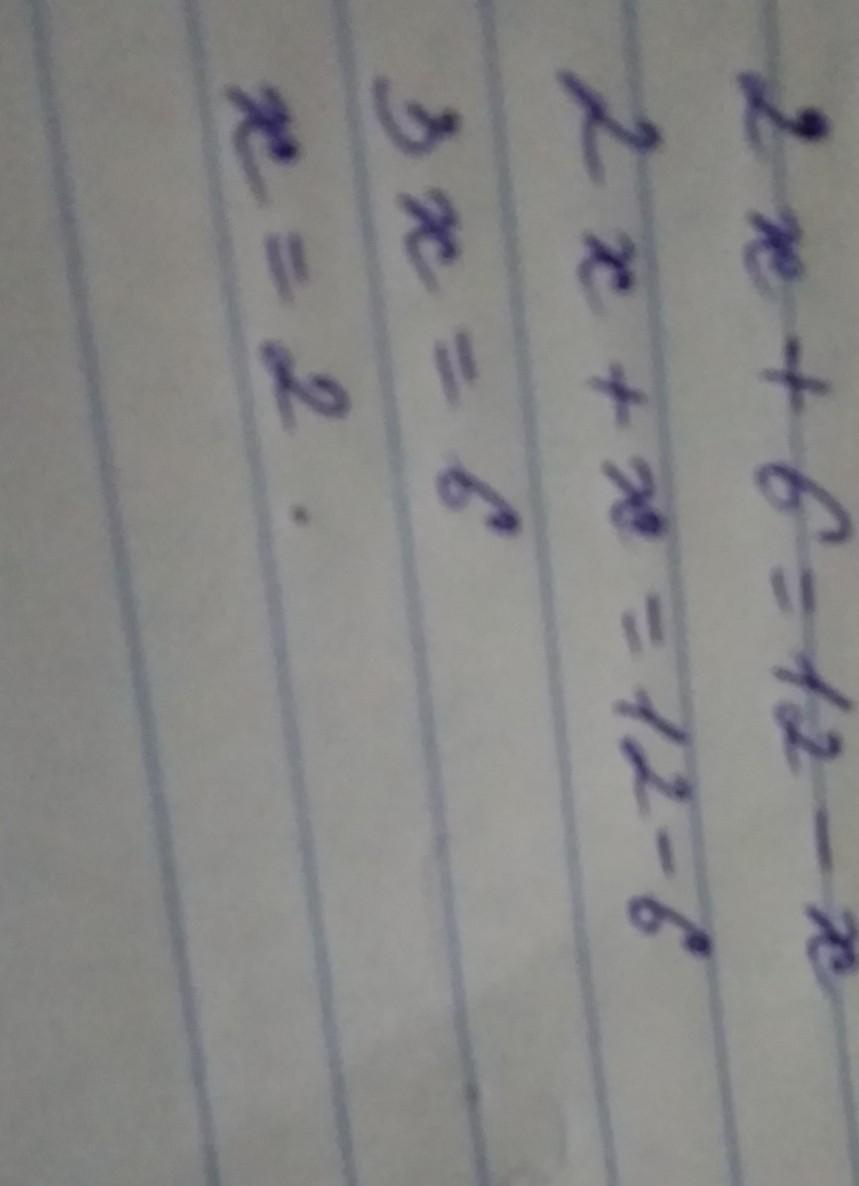 2x + 6 = 12 - x
2x + x = 12 - 6
3x = 6
x = 2.